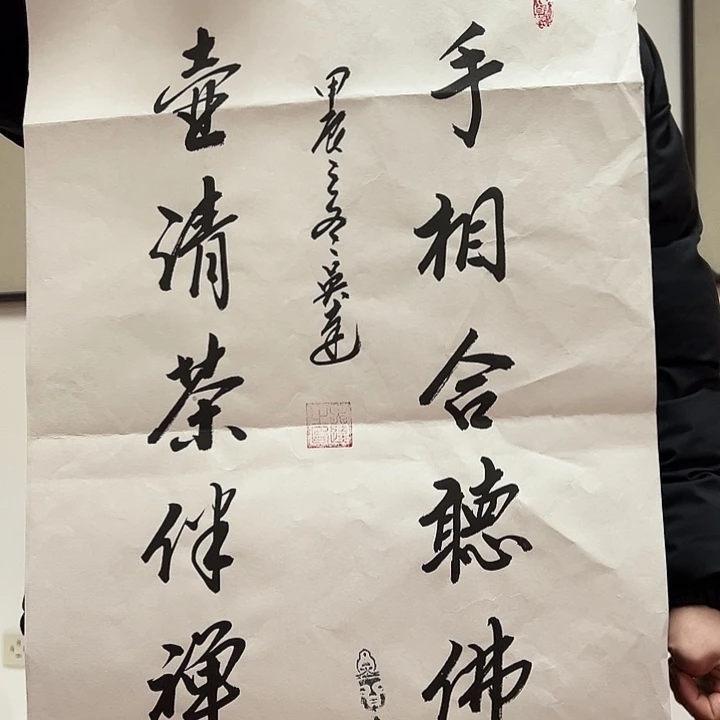 手相合聽佛
甲辰之冬吳達
壺清茶伴禪